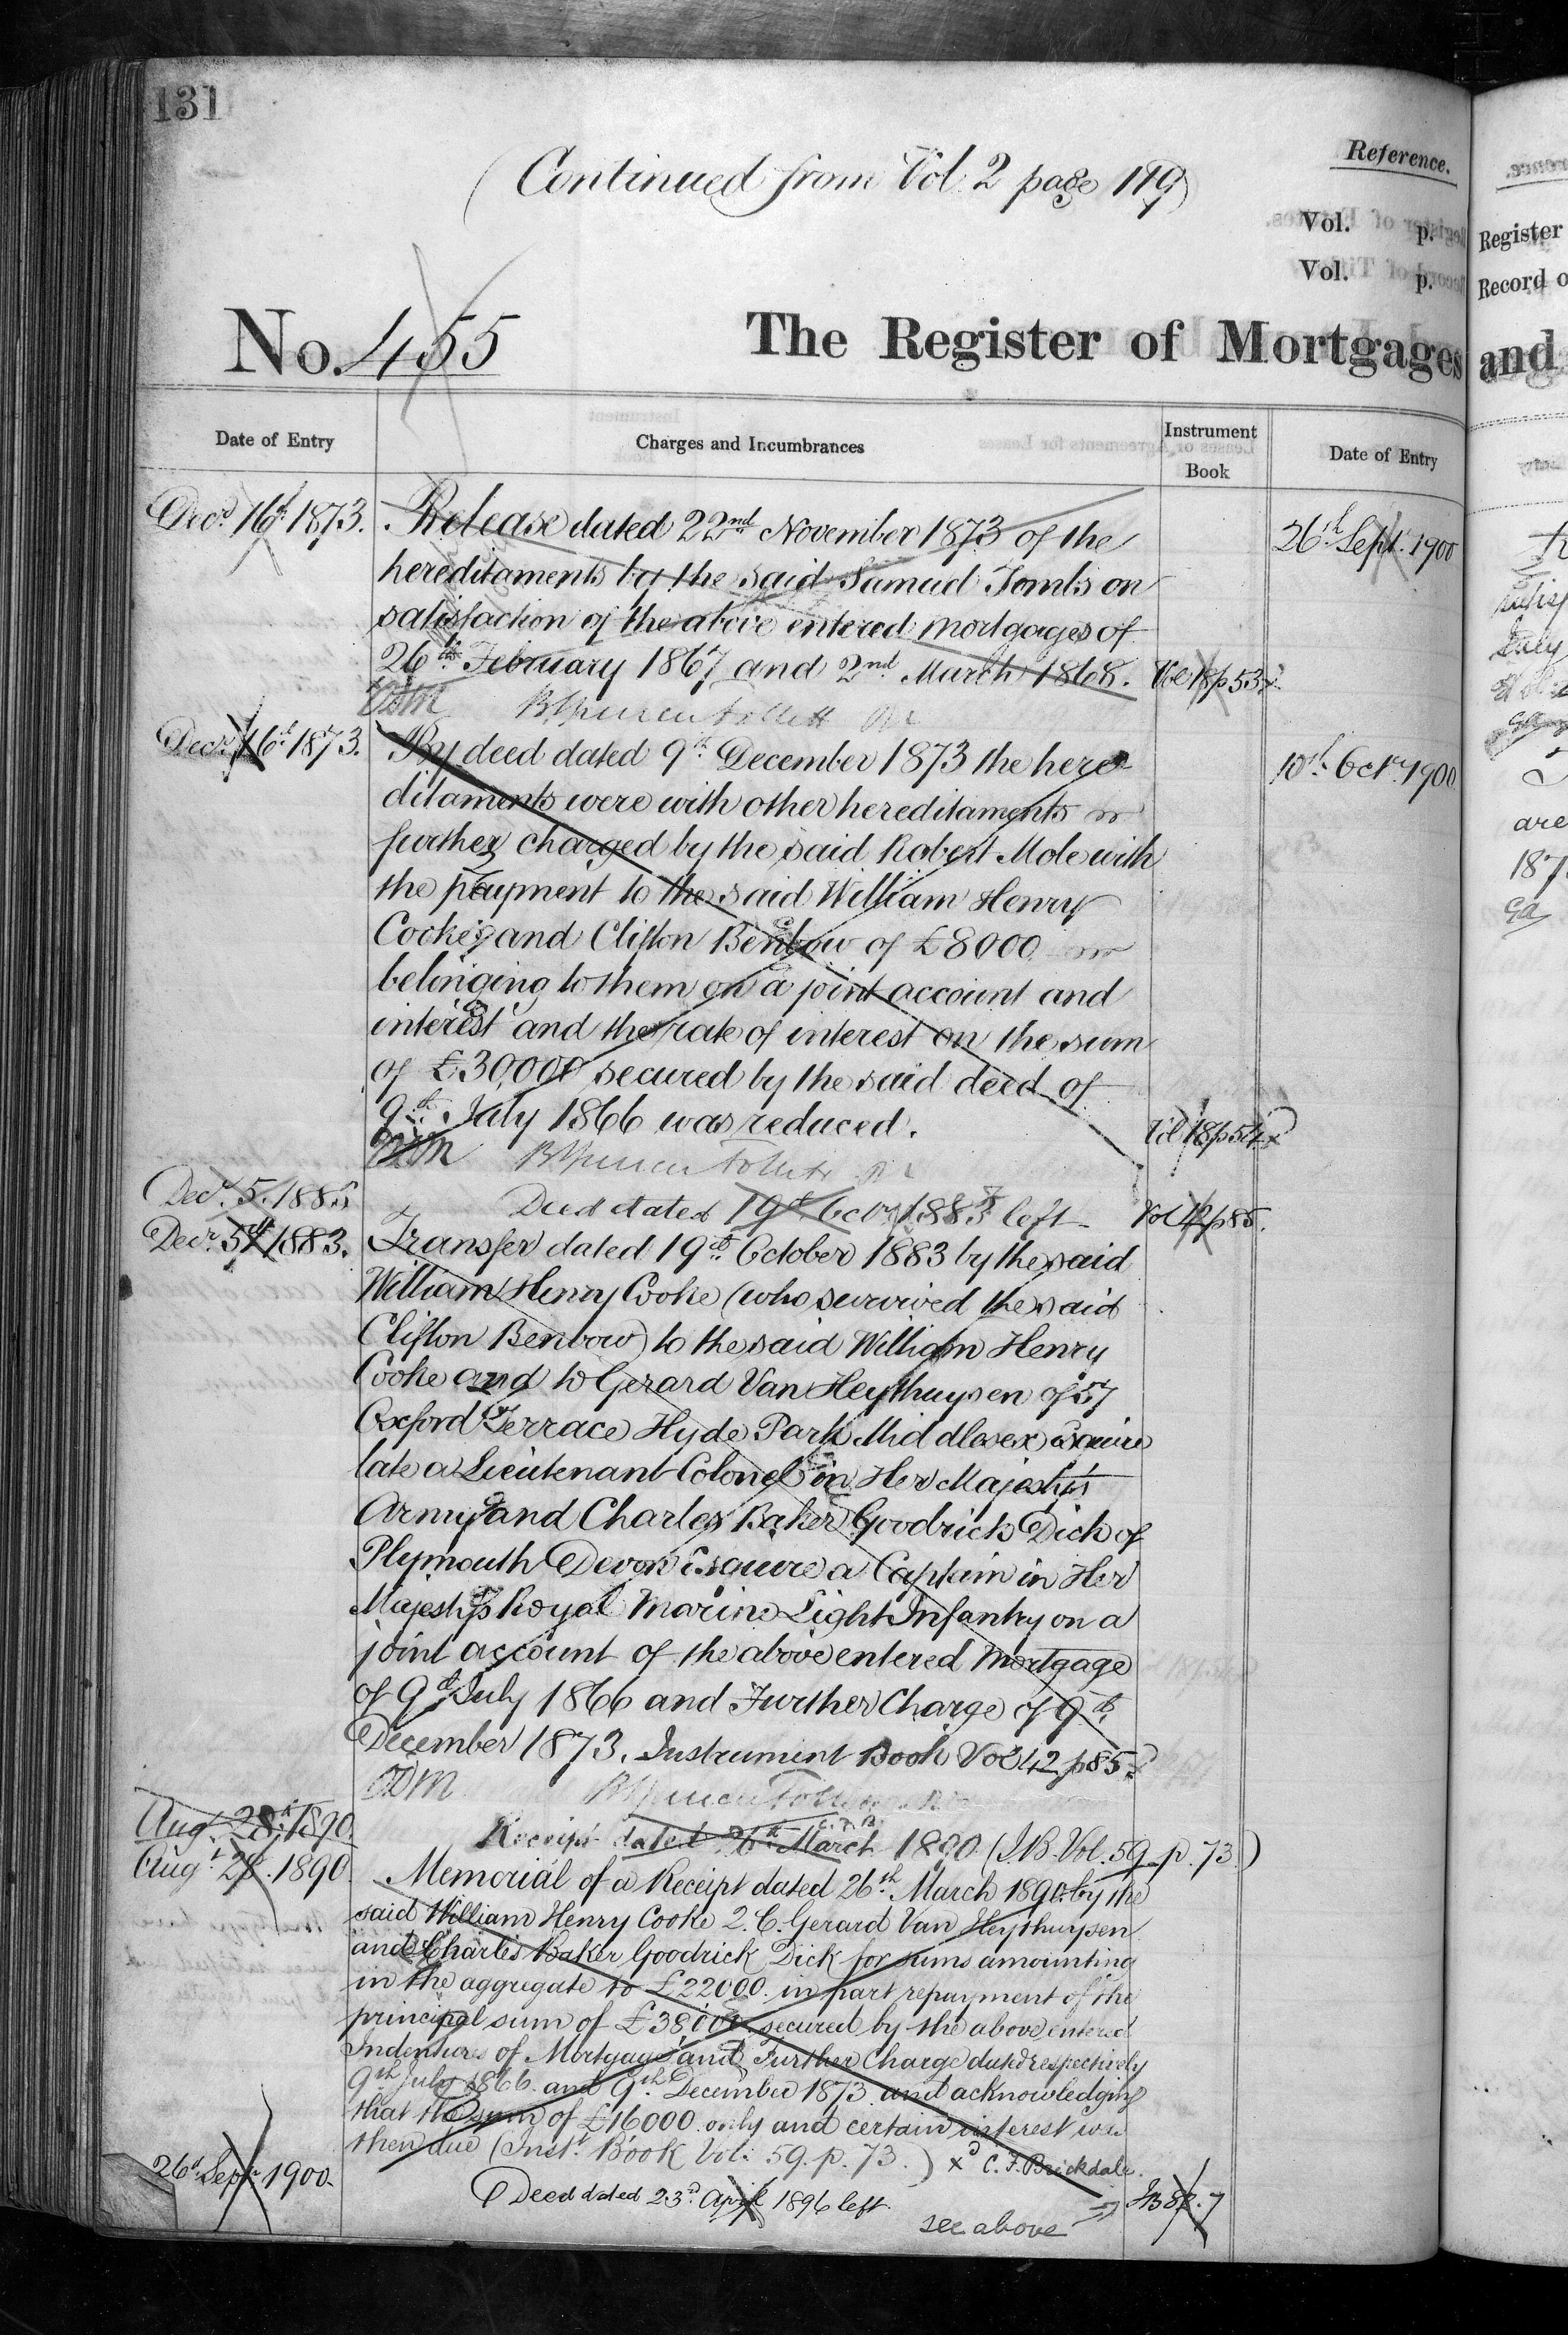 131
(Continued from Vol. 2 page 119)
Reference.
Vol. p.
Vol. p.
Register
Record o
No. 455
The Register of Mortgages and
Date of Entry
Charges and Incumbrances
Instrument Book
Date of Entry
Decr. 16th 1873.
Release dated 22nd November 1873 of the
hereditaments by the said Samuel Tombs on
satisfaction of the above entered mortgages of
26th February 1867 and 2nd March 1868.
Vol 18 p 53
26th Sept. 1900
Decr. 16th 1873.
By deed dated 9th December 1873 the here-
ditaments were with other hereditaments
further charged by the said Robert Mole with
the payment to the said William Henry
Cooke and Clifton Benbow of £8000
belonging to them on a joint account and
interest and the rate of interest on the sum
of £30,000 secured by the said deed of
9th July 1866 was reduced.
Vol 18 p 54
10th Octr. 1900
Decr. 5. 1883
Deed dated 19th Octr. 1883 left
Vol 42 p 85.
Decr. 5th 1883.
Transfer dated 19th October 1883 by the said
William Henry Cooke (who survived the said
Clifton Benbow) to the said William Henry
Cooke and to Gerard Van Heythuysen of 57
Oxford Terrace Hyde Park Middlesex Esquire
late a Lieutenant Colonel in Her Majesty's
Army and Charles Baker Goodrich Dick of
Plymouth Devon Esquire a Captain in Her
Majesty's Royal Marine Light Infantry on a
joint account of the above entered Mortgage
of 9th July 1866 and Further Charge of 9th
December 1873. Instrument Book Vol 42 p 85
Aug. 28th 1890.
Receipt dated 26th March 1890 (I.B. Vol. 59 p. 73.)
Aug. 28. 1890
Memorial of a Receipt dated 26th March 1890 by the
said William Henry Cooke Q.C. Gerard Van Heythuysen
and Charles Baker Goodrick Dick for sums amounting
in the aggregate to £22000. in part repayment of the
principal sum of £38,000. secured by the above entered
Indentures of Mortgage and Further Charge dated respectively
9th July 1866. and 9th December 1873. and acknowledging
that the sum of £16000. only and certain interest was
then due (Inst. Book Vol: 59. p. 73.) C. F. Brickdale.
26th Sepr. 1900.
Deed dated 23rd April 1896 left.
see above
I B 82. 7
July
are
187